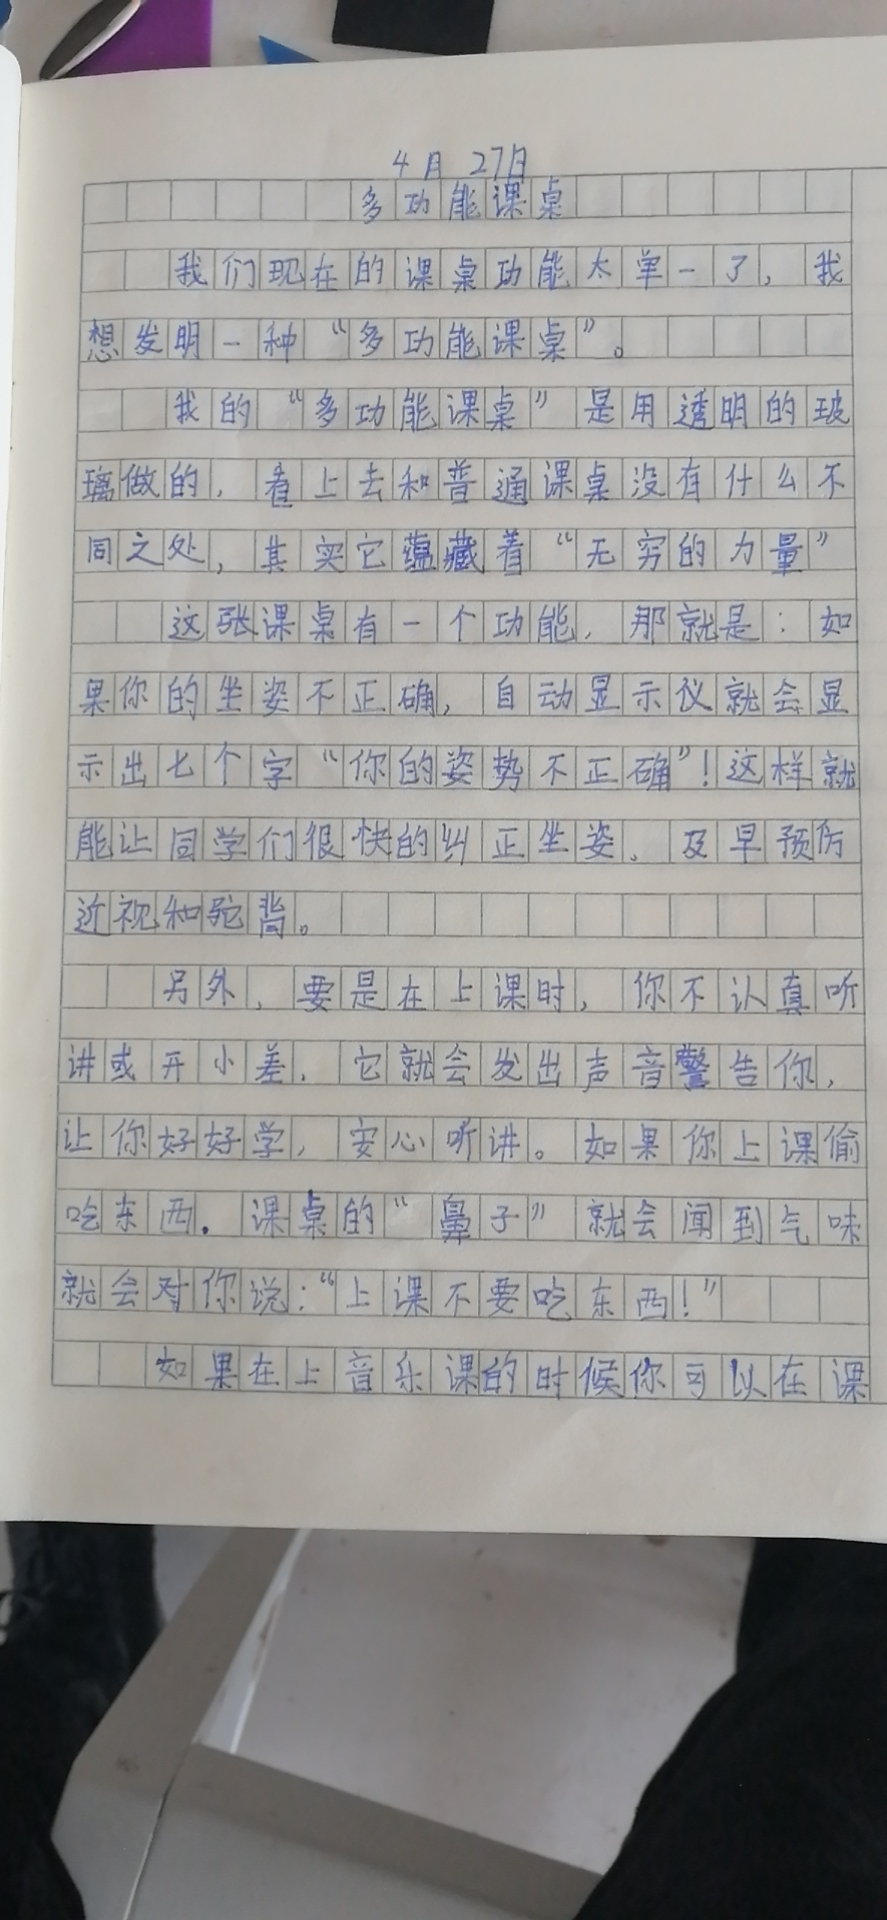 4月27日
多功能课桌
我们现在的课桌功能太单一了，我
想发明一种“多功能课桌”。
我的“多功能课桌”是用透明的玻
璃做的，看上去和普通课桌没有什么不
同之处，其实它蕴藏着“无穷的力量”
这张课桌有一个功能，那就是：如
果你的坐姿不正确，自动显示仪就会显
示出七个字“你的姿势不正确”！这样就
能让同学们很快的纠正坐姿。及早预防
近视和驼背。
另外，要是在上课时，你不认真听
讲或开小差，它就会发出声音警告你，
让你好好学，安心听讲。如果你上课偷
吃东西．课桌的“鼻子”就会闻到气味
就会对你说：“上课不要吃东西！”
如果在上音乐课的时候你可以在课